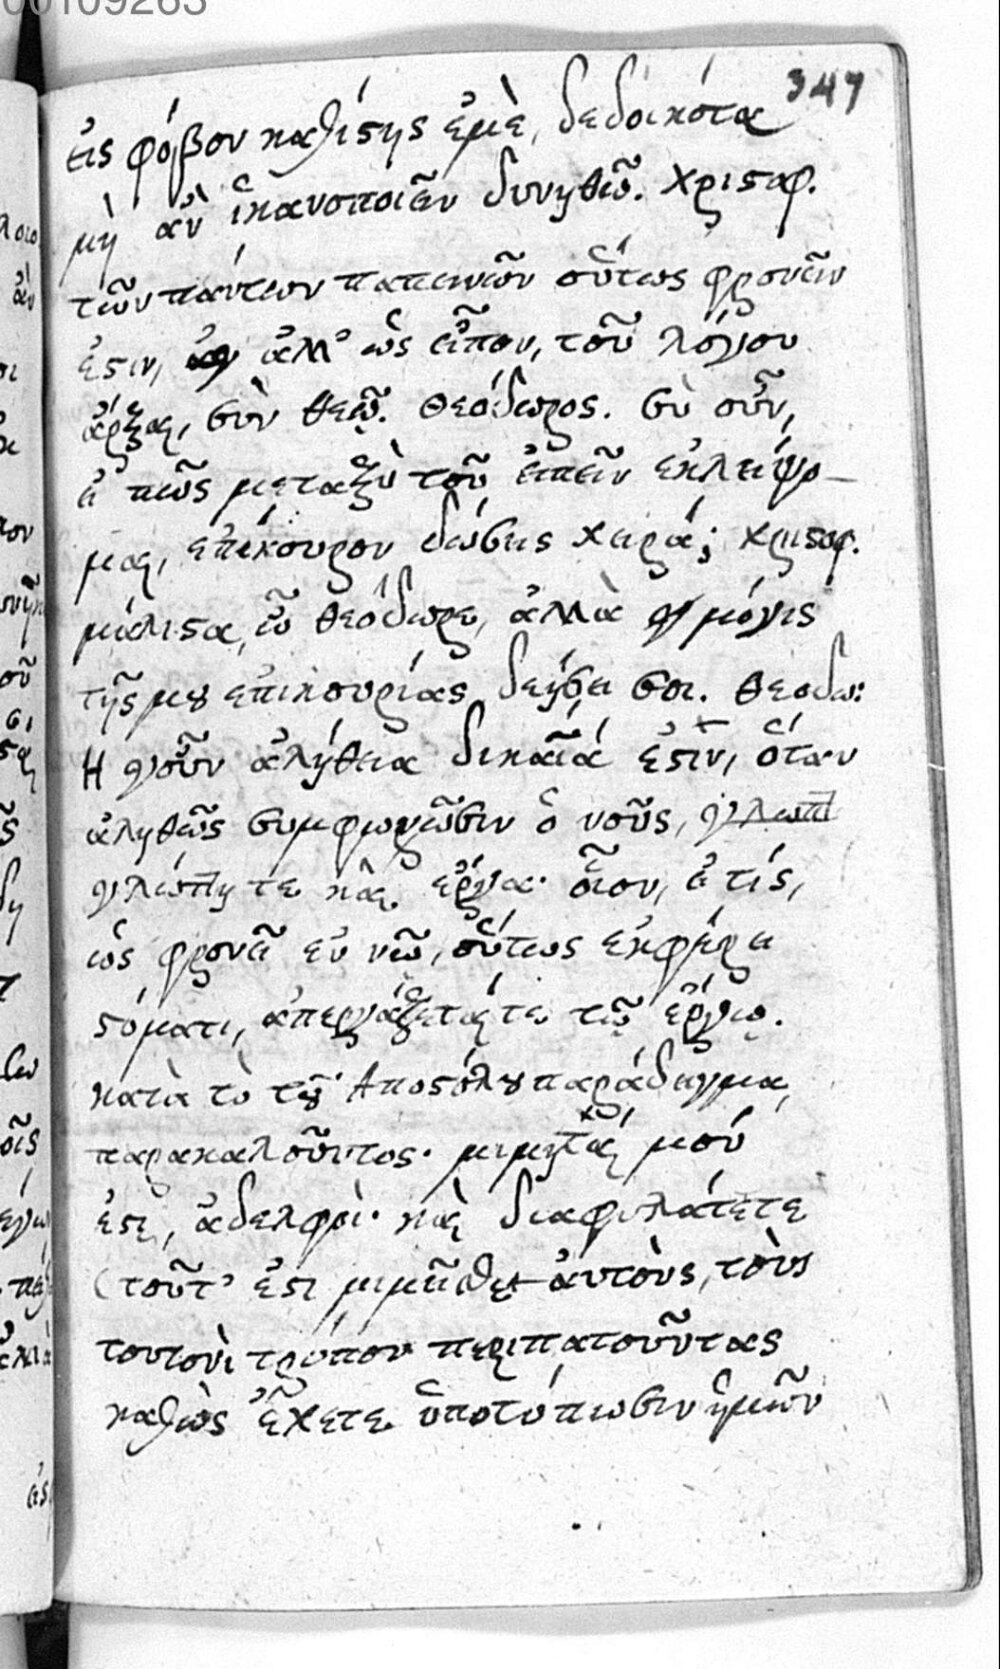 00109263
347
εἰς φόβον καθίσῃς ἐμὲ, δεδοικότα
μὴ ἀν ἱκανοποιεῖν δυνηθῶ. Χρισαφ.
τῶν πάντων ταπεινῶν οὕτως φρονεῖν
ἐστιν, ἀλλ' ὡς εἶπον, τοῦ λόγου
ἄρξαι, σὺν θεῷ. Θεόδωρος. Σὺ οὖν,
εἴ πως μεταξὺ τοῦ εἰπεῖν ἐκλείψο-
μαι, ἐπίκουρον δώσεις χεῖρά; Χρισαφ.
μάλιστα, ὦ Θεόδωρε, ἀλλὰ γὰρ μόγις
τῆς μου ἐπικουρίας δεήσει σοι. Θεοδω:
Ἡ γοῦν ἀλήθεια δικαῖά ἐστιν, ὅταν
ἀληθῶς συμφωνῶσιν ὁ νοῦς, γλωττ
γλώττη τε καὶ ἔργα· οἷον, εἴ τίς,
ὡς φρονεῖ ἐν νῷ, οὕτως ἐκφέρει
στόματι, ἀπεργάζεταί τε τῷ ἔργῳ.
κατὰ τὸ τοῦ Ἀποστόλου παράδειγμα,
παρακαλοῦντος· μιμηταί μού
ἐστε, ἀδελφοὶ· καὶ διαφυλάτετε
(τοῦτ' ἐστι μιμεῖσθε αὐτοὺς, τοὺς
τουτονὶ τρόπον περιπατοῦντας
καθὼς ἔχετε ὑποτύπωσιν ἡμῶν